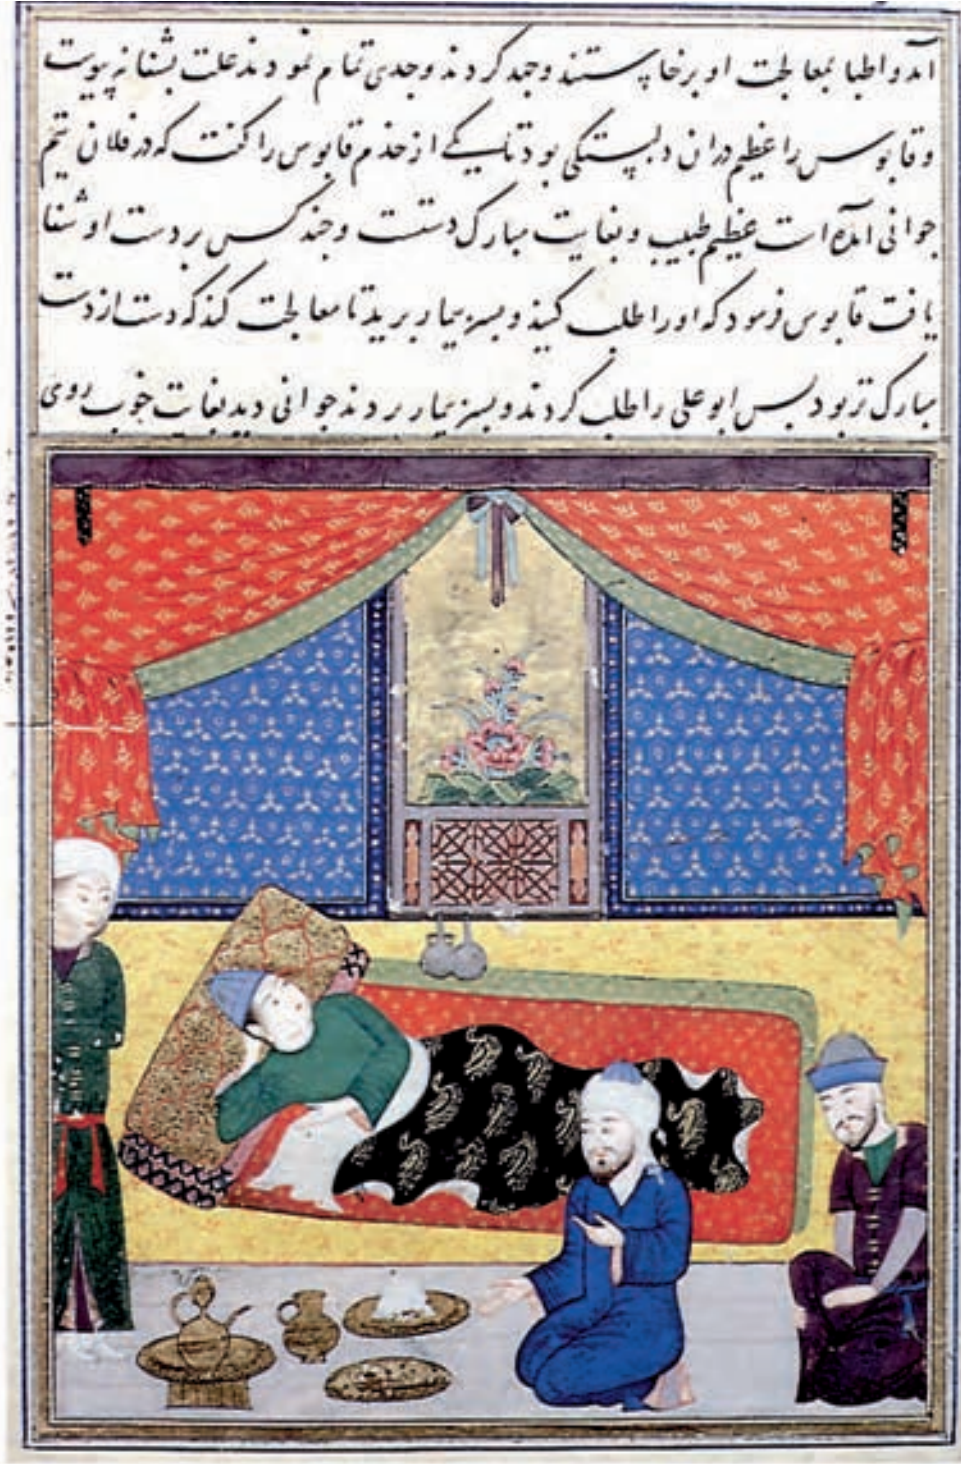 آمد و اطبا بمعالجت او برخاستند و جهد کردند و جدی تمام نمودند علت بشفا نه پیوست
و قابوس را عظیم در ان دلبستگی بود تا یکی از خدم قابوس را کفت که در فلان تیم
جوانی امده است عظیم طبیب و بغایت مبارک دست و چند کس بر دست او شفا
یافت قابوس فرمود که او را طلب کنید و بسر بیمار برید تا معالجت کند که دست از دست
مبارک تر بود بس ابو علی را طلب کردند و بسر بیمار بردند جوانی دید بغایت خوب روی